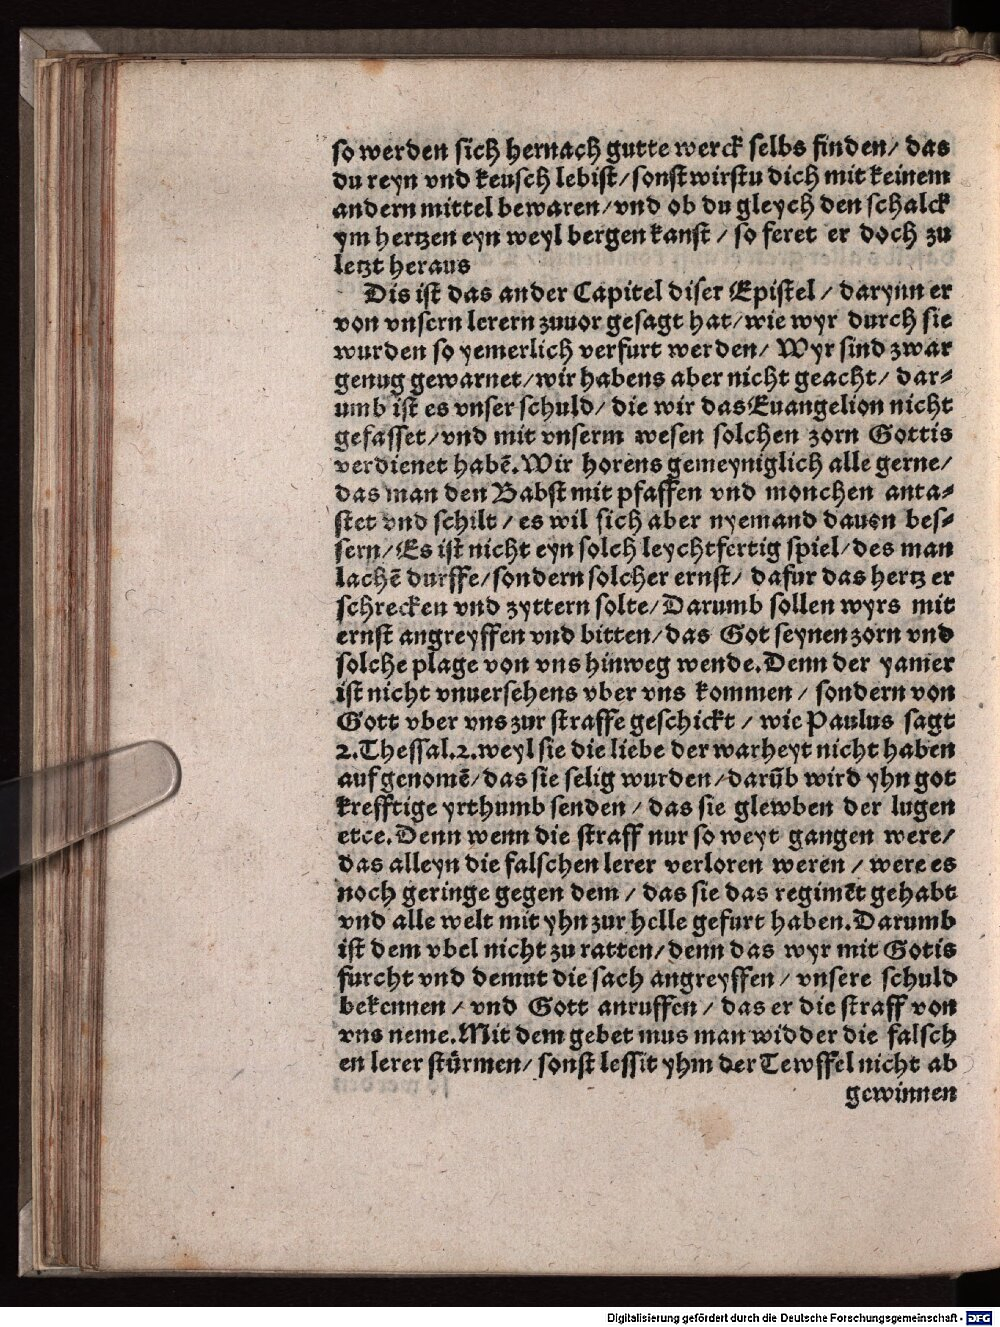 so werden sich hernach gutte werck selbs finden/ das
du reyn vnd keusch lebist/sonst wirstu dich mit keinem
andern mittel bewaren/vnd ob du gleych den schalck
ym hertzen eyn weyl bergen kanst / so feret er doch zu
letzt heraus
Dis ist das ander Capitel diser Epistel / darynn er
von vnsern lerern zuuor gesagt hat/wie wyr durch sie
wurden so yemerlich verfurt werden/ Wyr sind zwar
genug gewarnet/wir habens aber nicht geacht/ dar⸗
umb ist es vnser schuld/ die wir das Euangelion nicht
gefasset/vnd mit vnserm wesen solchen zorn Gottis
verdienet habē.Wir horens gemeyniglich alle gerne/
das man den Babst mit pfaffen vnd monchen anta⸗
stet vnd schilt / es wil sich aber nyemand dauon bes⸗
sern/Es ist nicht eyn solch leychtfertig spiel/des man
lachē durffe/sondern solcher ernst/ dafur das hertz er
schrecken vnd zyttern solte/Darumb sollen wyrs mit
ernst angreyffen vnd bitten/das Got seynen zorn vnd
solche plage von vns hinweg wende.Denn der yamer
ist nicht vnuersehens vber vns kommen / sondern von
Gott vber vns zur straffe geschickt / wie Paulus sagt
2.Thessal.2.weyl sie die liebe der warheyt nicht haben
auf genomē/das sie selig wurden/darūb wird yhn got
krefftige yrthumb senden / das sie glewben der lugen
etce.Denn wenn die straff nur so weyt gangen were/
das alleyn die falschen lerer verloren weren / were es
noch geringe gegen dem / das sie das regimēt gehabt
vnd alle welt mit yhn zur helle gefurt haben.Darumb
ist dem vbel nicht zu ratten/denn das wyr mit Gotis
furcht vnd demut die sach angreyffen / vnsere schuld
bekennen / vnd Gott anruffen / das er die straff von
vns neme.Mit dem gebet mus man widder die falsch
en lerer stürmen/ sonst lessit yhm der Tewffel nicht ab
gewinnen
Digitalisierung gefördert durch die Deutsche Forschungsgemeinschaft - DFG